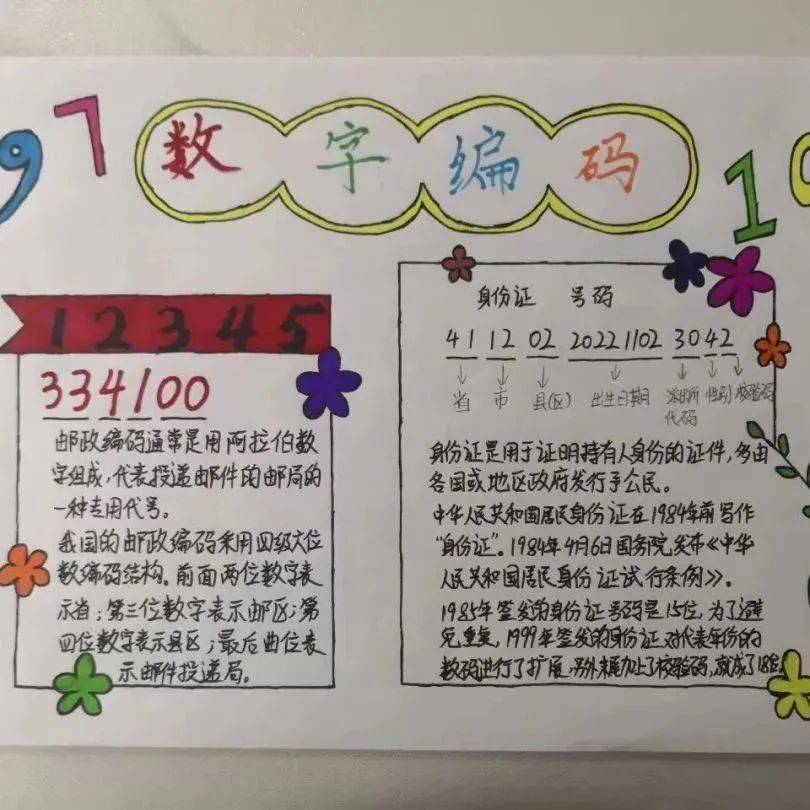 9 7 数字编码 1 0
12345
334100
邮政编码通常是用阿拉伯数
字组成，代表投递邮件的邮局的
一种专用代号。
我国的邮政编码采用四级六位
数编码结构。前面两位数字表
示省；第三位数字表示邮区；第
四位数字表示县区；最后两位表
示邮件投递局。
身份证 号码
41 12 02 20221102 30 4 2
省 市 县(区) 出生日期 派出所 性别 校验码
代码
身份证是用于证明持有人身份的证件，多由
各国或地区政府发行予公民。
中华人民共和国居民身份证在1984年前写作
“身份证”。1984年4月6日国务院发布《中华
人民共和国居民身份证试行条例》。
1985年签发的身份证号码是15位，为了避
免重复，1999年签发的身份证对代表年份的
数码进行了扩展，另外末尾加上了校验码，就成了18位